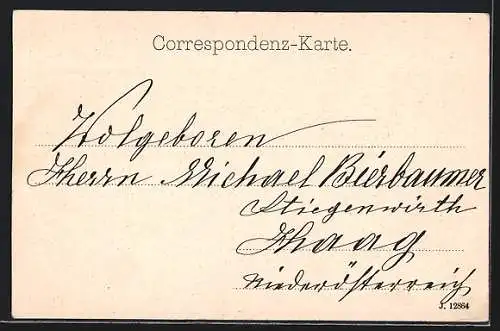 Correspondenz-Karte.
Wolgeboren
Herrn Michael Bierbaumer
Stiegenwirth
Haag
Niederösterreich
J. 12864